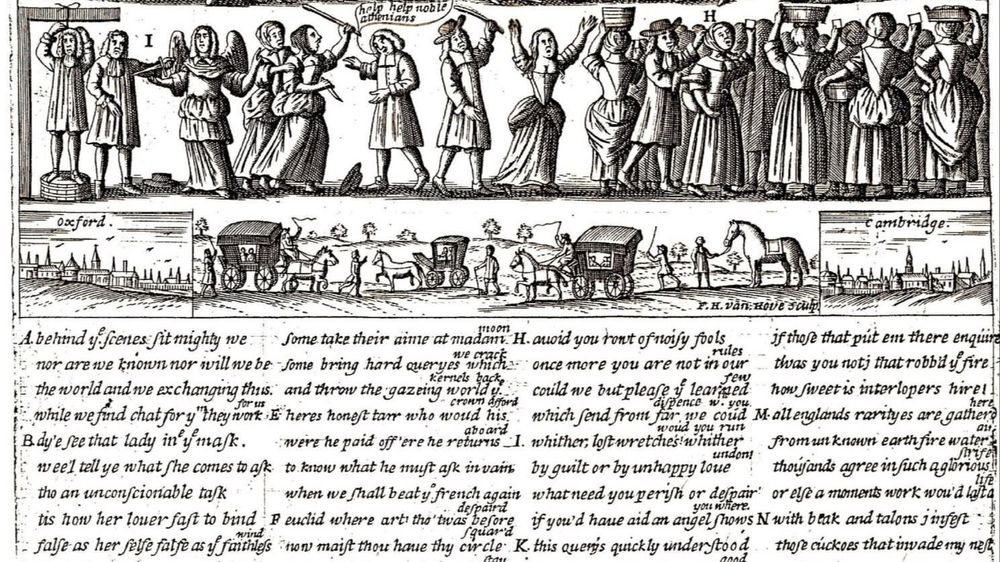 help help noble
athenians
I
H
oxford.
Cambridge.
F. H. van. Hove sculp.
A. behind yᵉ scenes sit mighty we
nor are we known nor will we be
the world and we exchanging thus.
while we find chat for yᵐ they work for us
B. dy'e see that lady in yᵉ mask.
weel tell ye what she comes to ask
tho an unconscionable task
tis how her lover fast to bind
false as her selfe false as yᵉ faithless wind
some take their aime at madam moon
some bring hard queryes which we crack
and throw the gazeing world yᵉ kernels back
E heres honest tarr who woud his crown afford
were he paid off ere he returns aboard
to know what he must ask in vain
when we shall beat yᵉ french again
F euclid where art tho 'twas before despaird
now maist thou have thy circle squar'd
stay
H. avoid you rout of noisy fools
once more you are not in our rules
could we but please yᵉ learned few
which send from far we coud dispence wᵗʰ you
I. whither, lost wretches whither woud you run
by guilt or by unhappy love undon
what need you perish or despair
if you'd have aid an angel shows you where.
K. this querys quickly understood
good
if those that put em there enquire
twas you not I that robb'd yᵉ fire
how sweet is interlopers hire!
M. all englands rarityes are gatherd here
from unknown earth fire water an
thousands agree in such a glorious strife
or else a moments work wou'd last a life
N with beak and talons I infest
those cuckoes that invade my nest